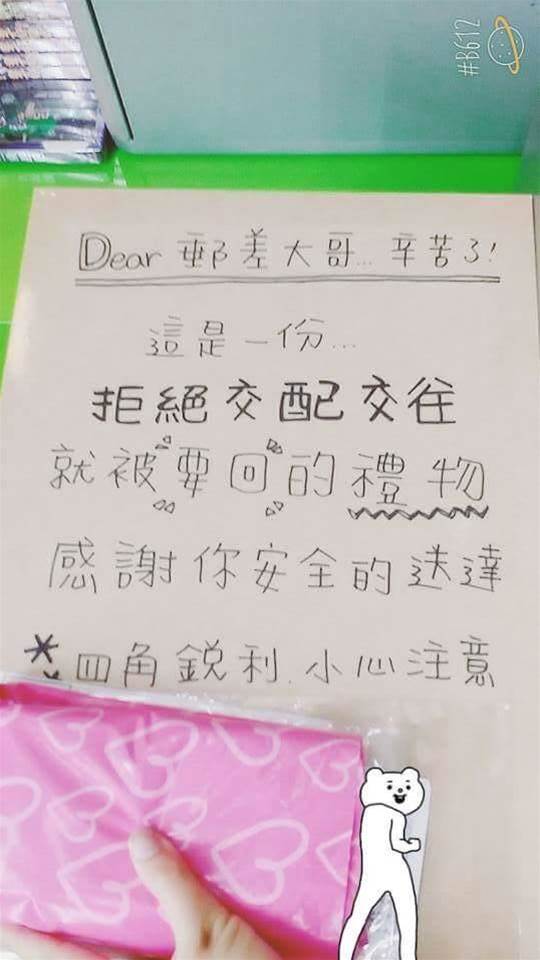 #B612
Dear 郵差大哥... 辛苦了!
這是一份...
拒絕交配交往
就被要回的禮物
感謝你安全的送達
* 四角銳利.小心注意